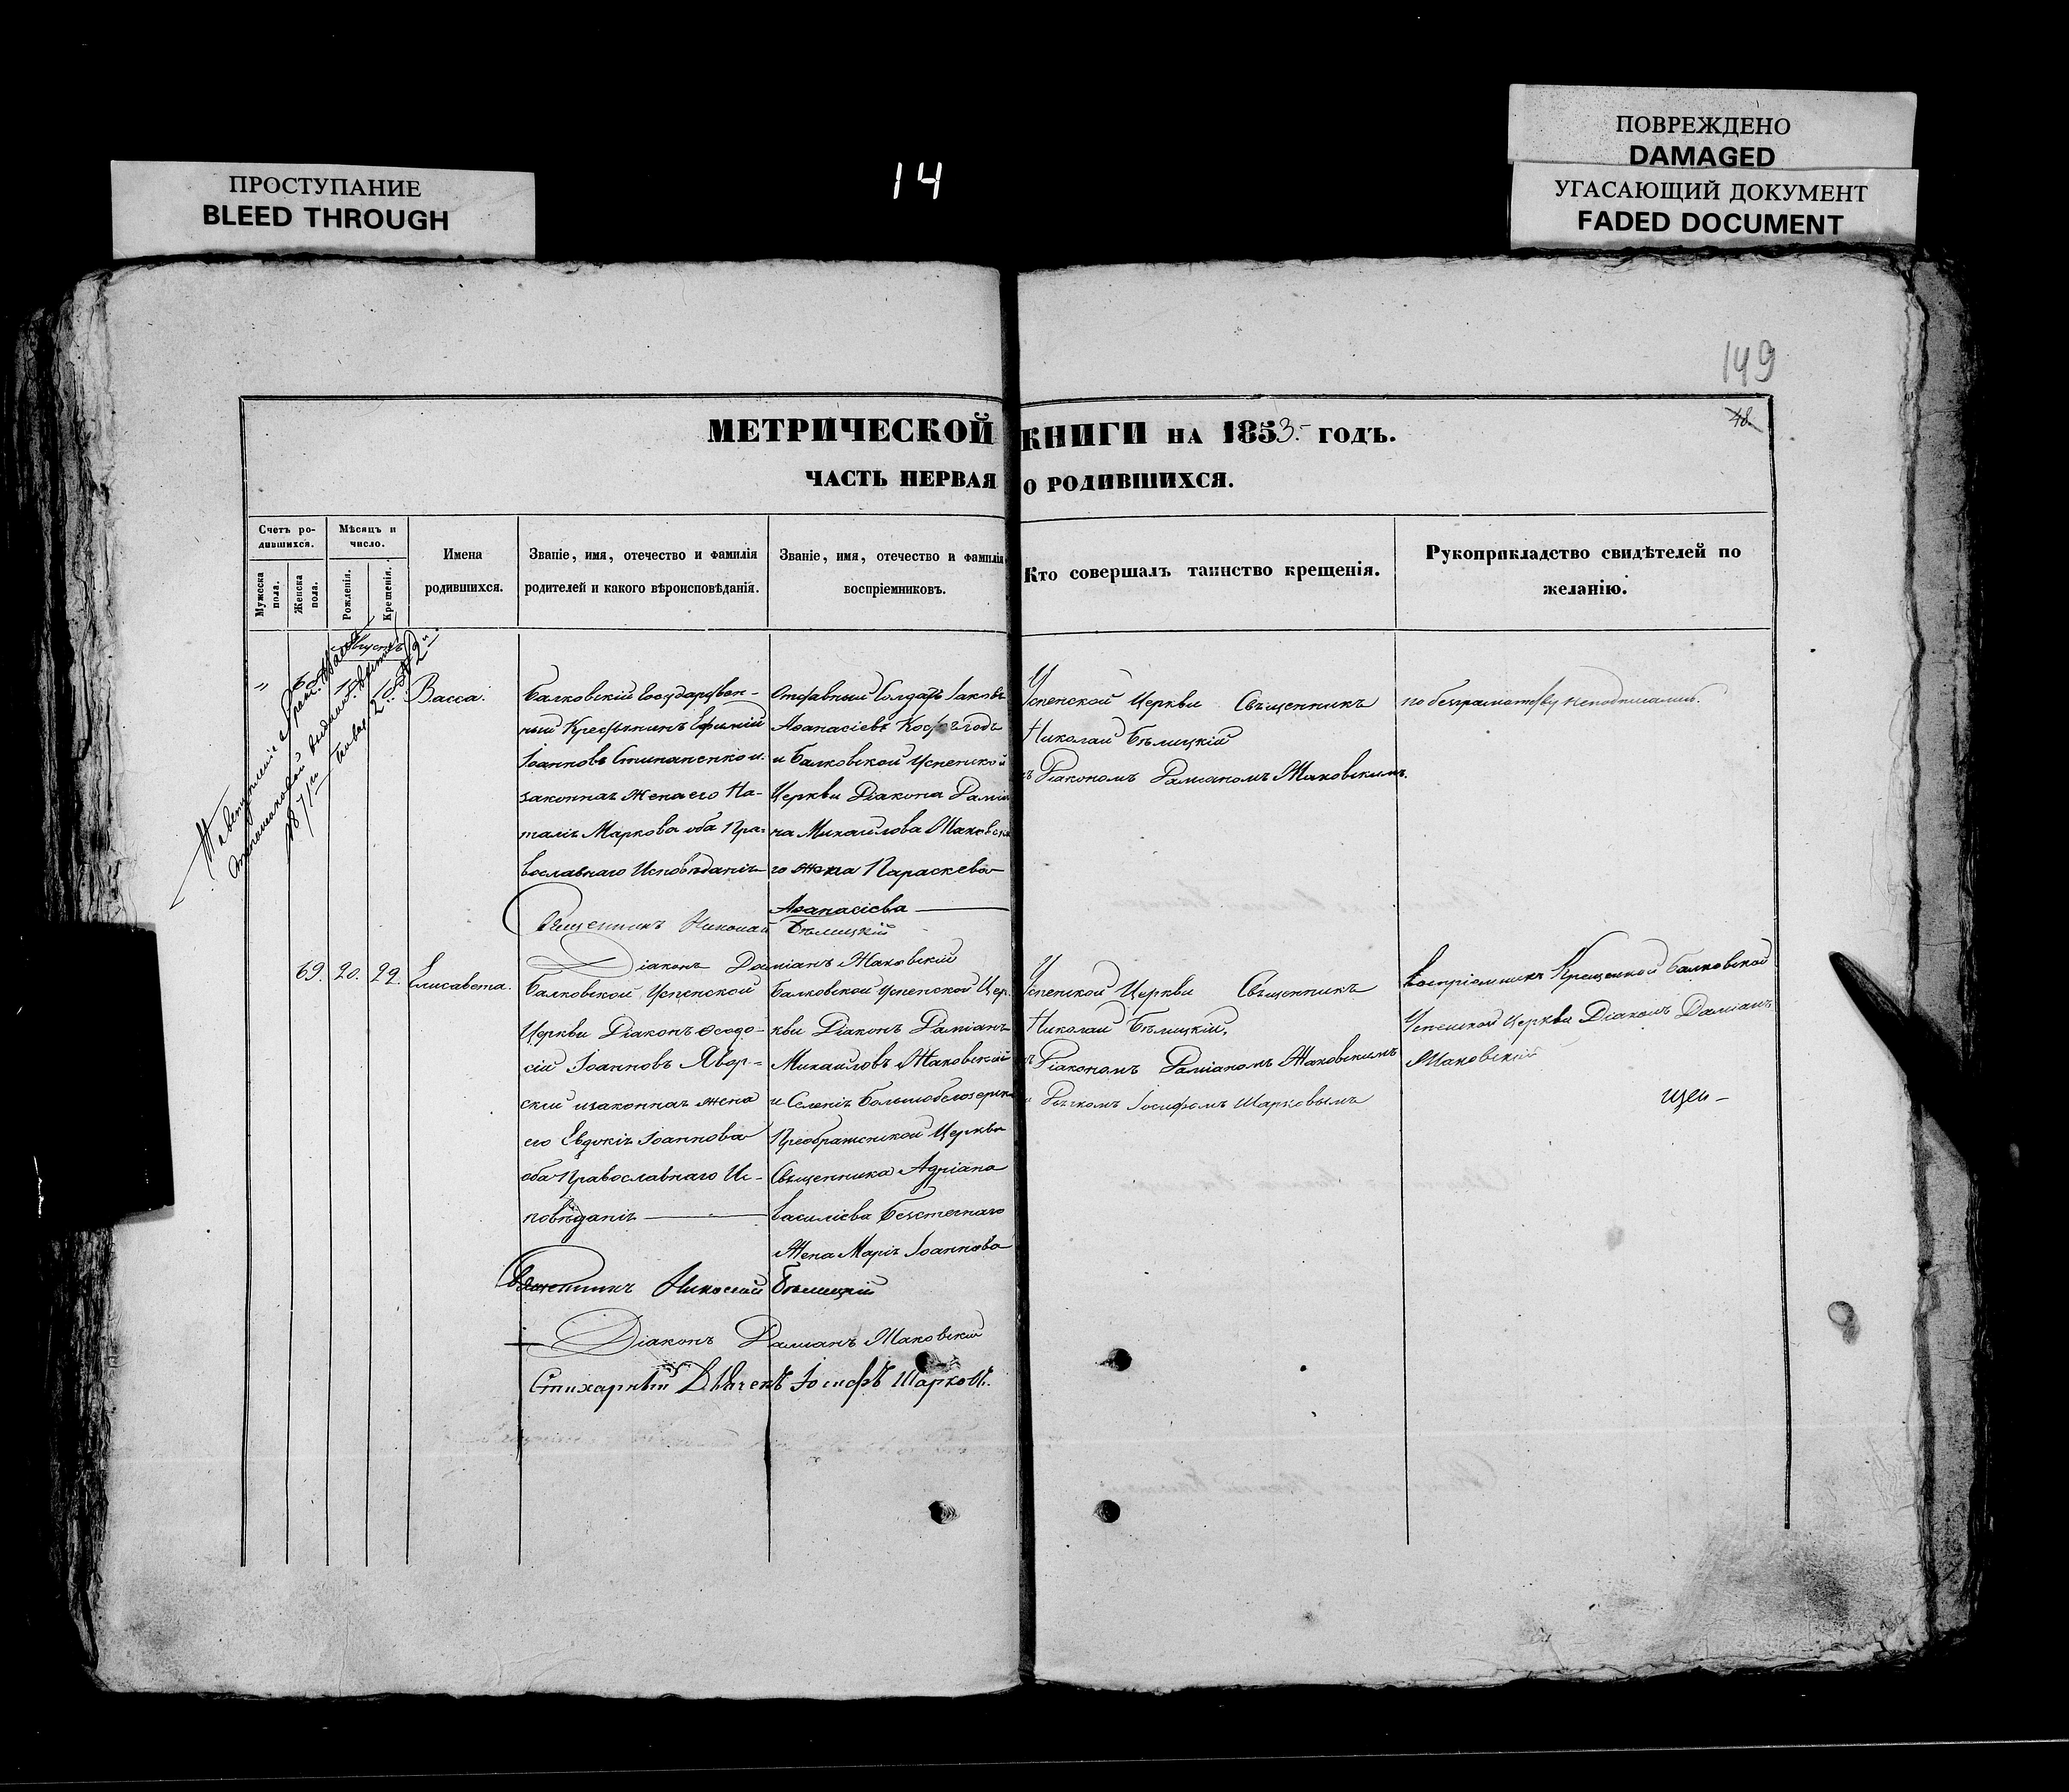 ПОВРЕЖДЕНО
DAMAGED
УГАСАЮЩИЙ ДОКУМЕНТ
FADED DOCUMENT
ПРОСТУПАНИЕ
BLEED THROUGH
14
149
48.
МЕТРИЧЕСКОЙ КНИГИ НА 1853 ГОДЪ.
ЧАСТЬ ПЕРВАЯ О РОДИВШИХСЯ.
Счетъ ро-
дившихся.
Мужеска
пола.
Женска
пола.
Мѣсяцъ и
число.
Рожденія.
Крещенія.
Имена
родившихся.
Званіе, имя, отечество и фамилія
родителей и какого вѣроисповѣданія.
Званіе, имя, отечество и фамилія
воспріемниковъ.
Кто совершалъ таинство крещенія.
Рукоприкладство свидѣтелей по
желанію.
1871
"
Васса.
Балковскій Государствен-
ный Крестьянинъ
Іоанновъ и
законная жена его На-
талія Маркова оба Пра-
вославнаго Исповѣданія
Отставный Солдатъ Іаковъ
Аѳанасіевъ
и Балковской Успенской
Церкви Діакона Даміа
на Михаилова Маковска
го жена Параскева
Аѳанасіева
Успенской Церкви Священникъ
Николай Бѣлицкій
съ Діакономъ Даміаномъ Маковскимъ.
по безграмотству неподписались.
Священникъ Николай Бѣлицкій
Діаконъ Даміанъ Маковскій
69. 20. 22. Елисавета.
Балковской Успенской
Церкви Діаконъ Ѳеодо-
сій Іоанновъ Явор-
скій и законная жена
его Евдокія Іоаннова
оба Православнаго Ис-
повѣданія
Балковской Успенской Цер-
кви Діаконъ Даміанъ
Михаиловъ Маковскій
и Селенія Большобелозерки
Преображенской Церкви
Священника Адріана
Василіева
Жена Марія Іоаннова
Успенской Церкви Священникъ
Николай Бѣлицкій,
съ Діакономъ Даміаномъ Маковскимъ
и Дьячкомъ Іосифомъ Марковымъ
Воспріемникъ Крещенной Балковской
Успенской Церкви Діаконъ Даміанъ
Маковскій
Священникъ Николай Бѣлицкій
Діаконъ Даміанъ Маковскій
Стихарный Дьячекъ Іосифъ Марковъ.